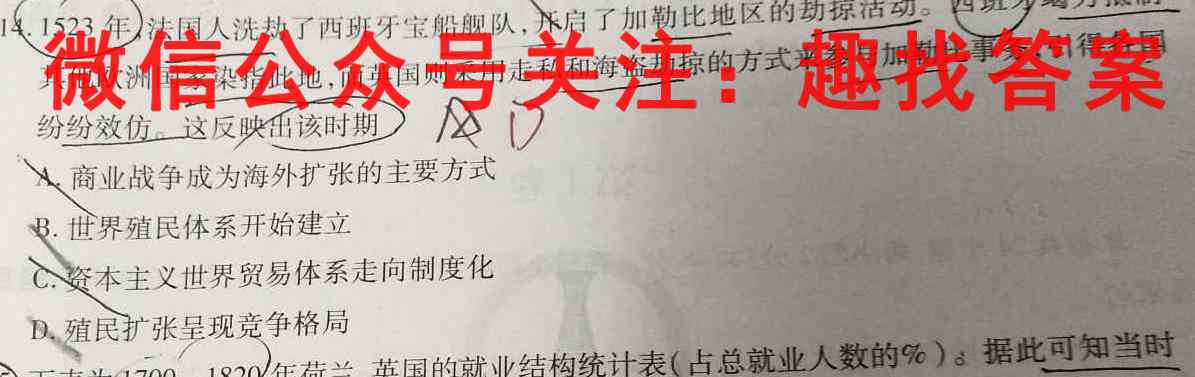 14. 1523年,法国人洗劫了西班牙宝船舰队,开启了加勒比地区的劫掠活动。西班牙竭力抵制
其他欧洲国家染指此地,而英国则采用走私和海盗劫掠的方式来参与加勒比事务,引得各国
微信公众号关注:趣找答案
纷纷效仿。这反映出该时期 D
A. 商业战争成为海外扩张的主要方式
B. 世界殖民体系开始建立
C. 资本主义世界贸易体系走向制度化
D. 殖民扩张呈现竞争格局
1700 1820年荷兰、英国的就业结构统计表(占总就业人数的%)。据此可知当时